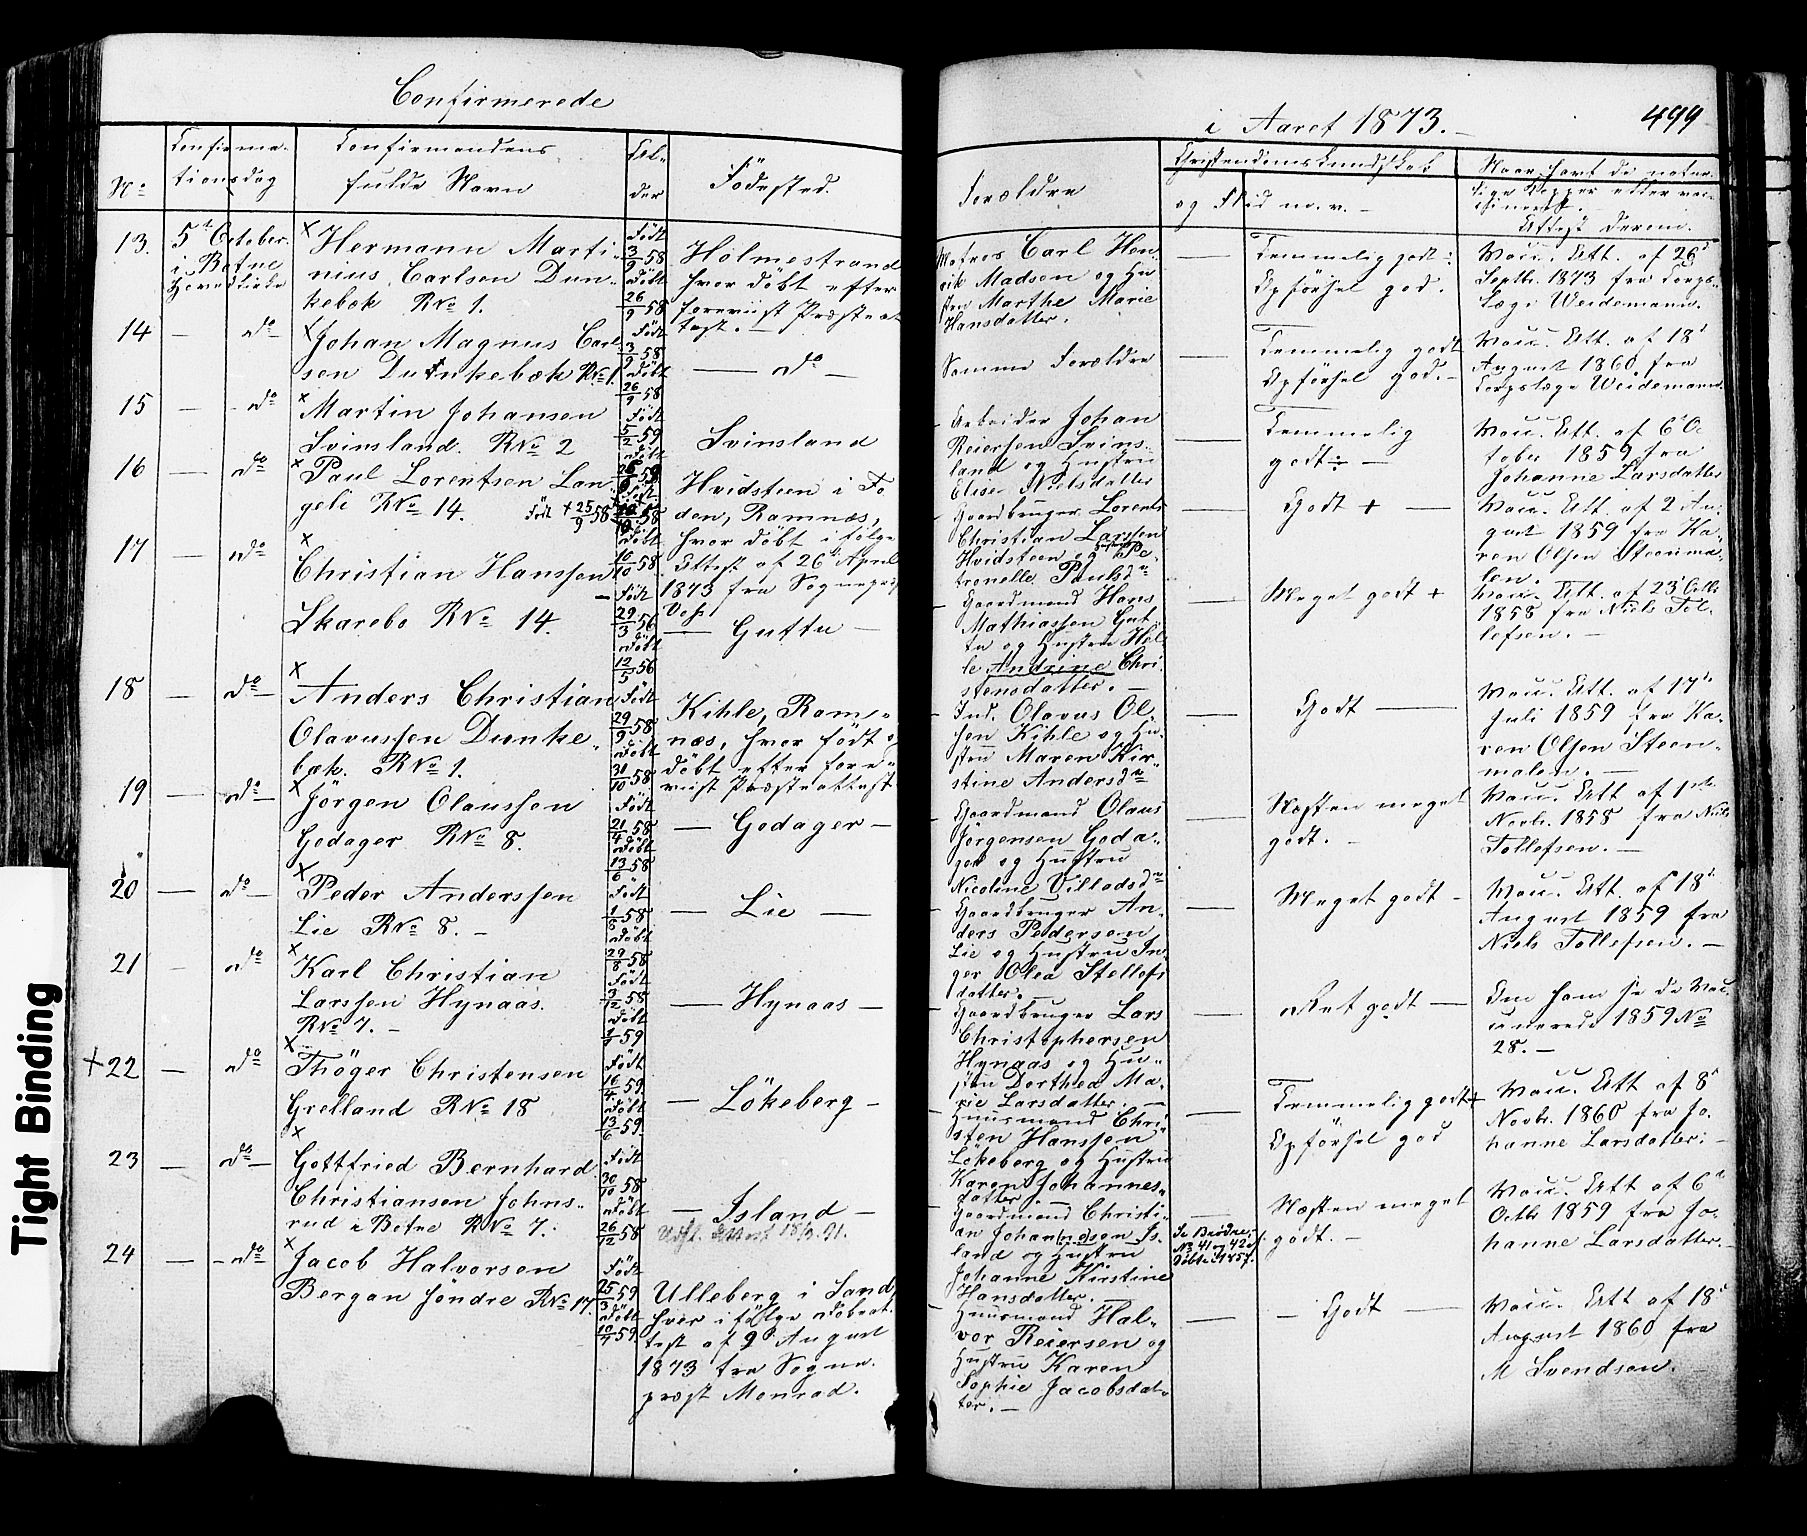 Confirmerede
i Aaret 1873.
499
No
Confirma-
tionsdag
Confirmandens
fulde Navn
Al-
der
Födested.
Forældre
Christendomskundskab
og Flid m.v.
Naar havt de natur-
lige Kopper eller vac-
cineret.
Attest derom.
13. 5t October
i Botne
Hovedkirke
Hermann Marti-
nius Carlsen Dun-
kebæk R No 1.
Född
3/9 58
Döbt
26/9 58
Holmestrand
hvor döbt efter
foreviist Præsteat-
test.
Matros Carl Hen-
rik Madsen og Hu-
stru Marthe Marie
Hansdatter.
Temmelig godt
Opförsel god.
Vacc. Att. af 26d
Septbr. 1873 fra Corps-
læge Weidemann.
14 do
Johan Magnus Carl-
sen Dunkebæk R No 1.
Födt
3/9 58
Döbt
26/9 58
do
Samme Forældre
Temmelig godt
Opförsel god.
Vacc. Att. af 18d
August 1860 fra
Corpslæge Weidemann.
15 do
Martin Johansen
Svinsland. R No 2
Födt
5/2 59
Döbt
Svinsland
Arbeider Johan
Reiersen Svins-
land og Hustru
Elise Nielsdatter
Temmelig
godt
Vacc. Att. af 6d Oc-
tober 1859 fra
Johanne Larsdatter
16 do
Paul Lorentsen Lan-
geli R No 14.
Födt + 25/9 58
Döbt
Hvidsteen i Fo-
den, Ramnæs,
hvor döbt ifölge
Attest af 26d April
1873 fra Sognepræst
Voss.
Gaardbruger Lorents
Christian Larssen
Hvidsteen og Hustru Pe-
tronelle Paulsdr
Godt +
Vacc. Att. af 2 Au-
gust 1859 fra Ka-
ren Olsen Steenma-
len.
17 do
Christian Hanssen
Skarebo R No 14.
Födt
29/3 56
Döbt
12/5 56
Guttu
Gaardmand Hans
Mathiassen Gut-
tu og Hustru Hel-
le Andrine Chri-
stensdatter.
Meget godt +
Vacc. Att. af 23d Octb.
1858 fra Niels Tol-
lefsen.
18 do
Anders Christian
Olavussen Dunke-
bæk. R No 1.
Födt
29/9 58
Döbt
31/10 58
Kihle, Ram-
næs, hvor födt og
döbt efter fore-
viist Præsteattest.
Ind. Olavus Ol-
sen Kihle og Hu-
stru Maren Kir-
stine Andersdr
Godt
Vacc. Att. af 17d
Juli 1859 fra Ka-
ren Olsen Steen-
malen.
19 do
Jörgen Olaussen
Godager R No 8.
Födt
21/4 58
Döbt
13/6 58
Godager
Gaardmand Olaus
Jörgensen Goda-
ger og Hustru
Nicoline Villadsdr
Næsten meget
godt.
Vacc. Att af 1ste
Novb. 1858 fra Niels
Tollefsen.
20 do
Peder Anderssen
Lie R No 8.
Födt
1/6 58
Döbt
29/8 58
Lie
Gaardbruger An-
ders Pedersen
Lie og Hustru In-
ger Olea Stellefs-
datter.
Meget godt
Vacc. Att. af 18d
August 1859 fra
Niels Tollefsen.
21 do
Karl Christian
Larssen Hynaas.
R No 7.
Födt
3/12 58
Döbt
Hynaas
Gaardbruger Lars
Christophersen
Hynaas og Hu-
stru Dorthea Ma-
rie Larsdatter.
Ret godt
Om ham se de Vac-
cinerede 1859 No
28.
+22 do
Thöger Christensen
Grelland R No 18
Födt
16/4 59
Döbt
13/6 59.
Lökeberg
Huusmand Chri-
sten Hanssen
Lökeberg og Hustru
Karen Johannes-
datter.
Temmelig godt +
Opförsel god
Vacc. Att af 8d
Novb. 1860 fra Jo-
hanne Larsdatter.
23 do
Gottfried Bernhard
Christiansen Johns-
rud i Botne R No 7.
Födt
30/10 58
Döbt
26/12 58
Island
Udst. Attest 18/3 91.
Gaardmand Christi-
an Johan(nes)sen Is-
land og Hustru
Johanne Kirstine
Hansdatter.
Se Brödre,
No 41 og 42 af
Döbte i 1857.
Næsten meget
godt.
Vacc. Att af 6d
Octb 1859 fra Jo-
hanne Larsdatter.
24 do
Jacob Halvorsen
Bergan söndre R No 17.
Födt
25/3 59
Döbt
10/7 59
Ulleberg i Sand,
hvor ifölge Döbeat-
test af 9d August
1873 fra Sogne-
præst Monrad.
Huusmand Hal-
vor Reiersen og
Hustru Karen
Sophie Jacobsdat-
ter.
Godt
Vacc. Att af 18d
August 1860 fra
M Svendsen.
Tight Binding